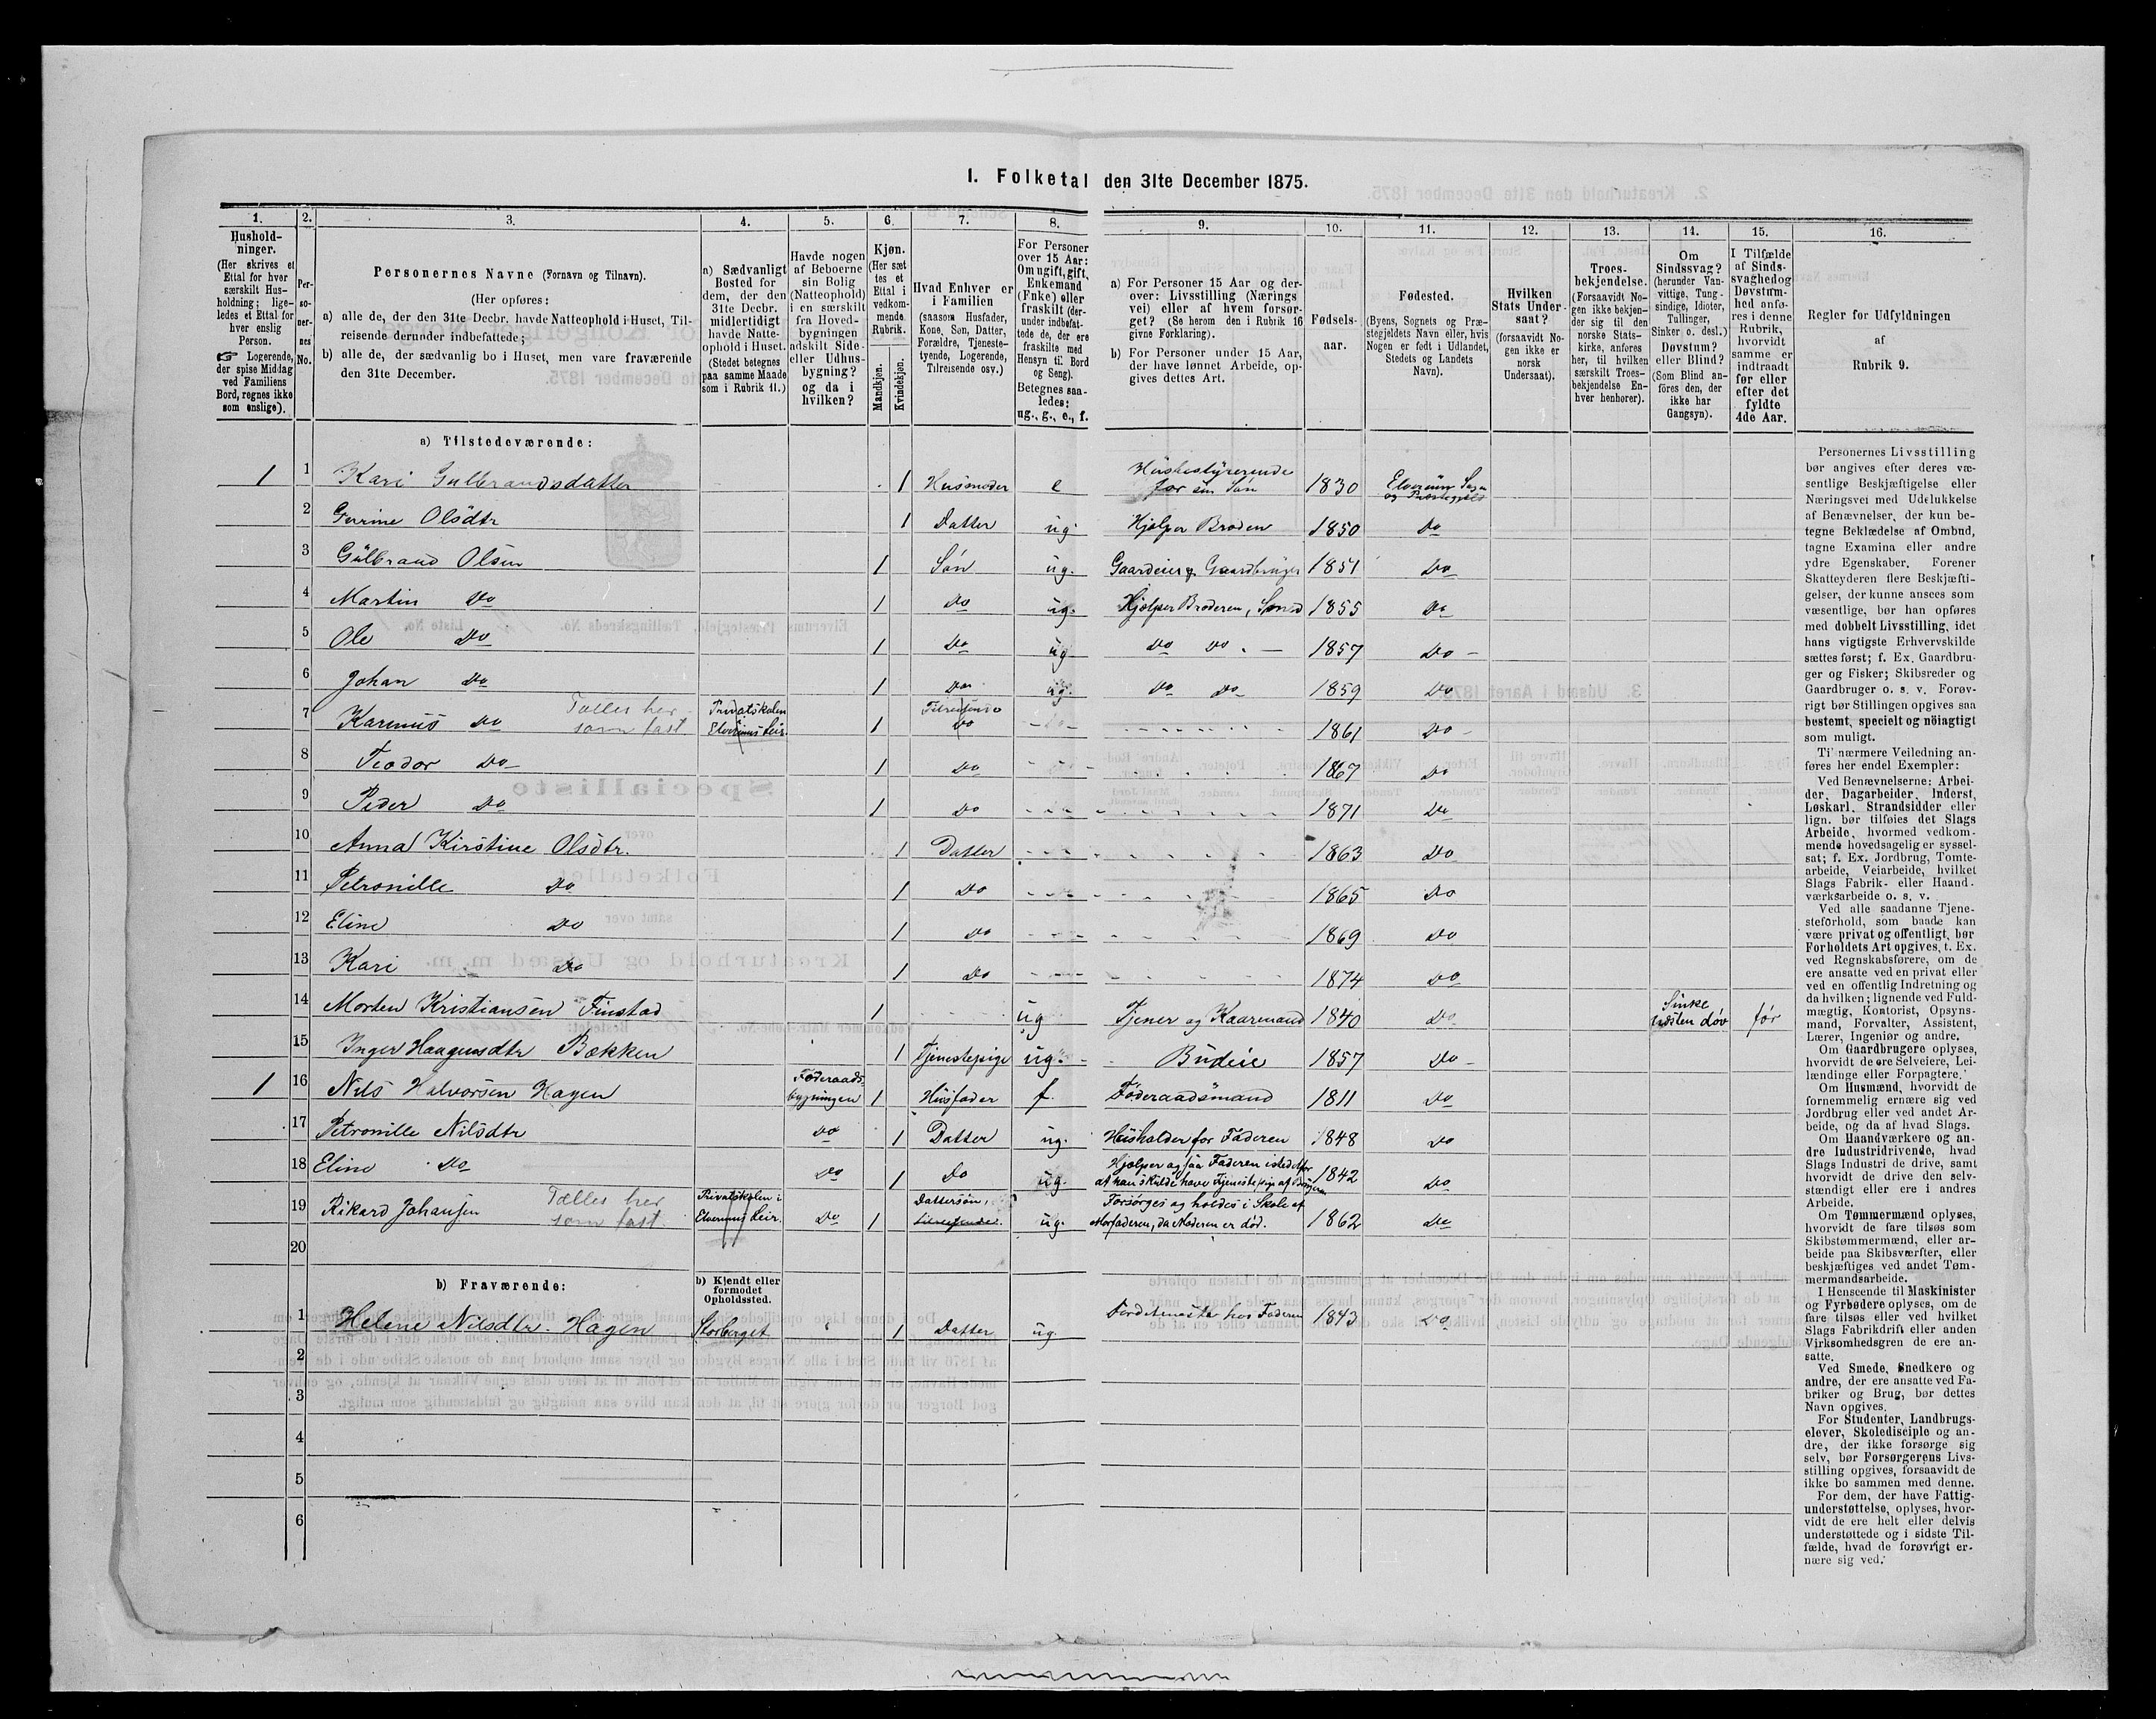 1. Folketal den 31te December 1875.
1.
Hushold-
ninger.
(Her skrives et
Ettal for hver
særskilt Hus-
holdning; lige-
ledes et Ettal for
hver enslig
Person.
☞ Logerende,
der spise Middag
ved Familiens
Bord, regnes ikke
som enslige).
2.
Per-
so-
ner-
nes
No.
3.
Personernes Navne (Fornavn og Tilnavn).
(Her opføres:
a) alle de, der den 31te Decbr. havde Natteophold i Huset, Til-
reisende derunder indbefattede;
b) alle de, der sædvanlig bo i Huset, men vare fraværende
den 31te December.
4.
a) Sædvanligt
Bosted for
dem, der den
31te Decbr.
midlertidigt
havde Natte-
ophold i Huset.
(Stedet betegnes
paa samme Maade
som i Rubrik 11.)
5.
Havde nogen
af Beboerne
sin Bolig
(Natteophold)
i en særskilt
fra Hoved-
bygningen
adskilt Side-
eller Udhus-
bygning?
og da i
hvilken?
6.
Kjøn.
(Her sæt
tes et
Ettal i
vedkom-
mende
Rubrik.
Mandkjøn.
Kvindekjøn.
7.
Hvad Enhver er
i Familien
(saasom Husfader,
Kone, Søn, Datter,
Forældre, Tjeneste-
tyende, Logerende,
Tilreisende osv.)
8.
For Personer
over 15 Aar:
Om ugift, gift,
Enkemand
(Enke) eller
fraskilt (der-
under indbefat-
tede de, der ere
fraskilte med
Hensyn til Bord
og Seng).
Betegnes saa-
ledes:
ug., g., e., f.
9.
a) For Personer 15 Aar og der-
over: Livsstilling (Nærings
vei) eller af hvem forsør-
get? (Se herom den i Rubrik 16
givne Forklaring).
b) For Personer under 15 Aar,
der have lønnet Arbeide, op-
gives dettes Art.
10.
Fødsels-
aar.
11.
Fødested.
(Byens, Sognets og Præ-
stegjeldets Navn eller, hvis
Nogen er født i Udlandet,
Stedets og Landets
Navn).
12.
Hvilken
Stats Under-
saat?
(forsaavidt No-
gen ikke er
norsk
Undersaat).
13.
Troes-
bekjendelse.
(Forsaavidt No-
gen ikke bekjen-
der sig til den
norske Stats-
kirke, anføres
her, til hvilken
særskilt Troes-
bekjendelse En-
hver henhører).
14.
Om
Sindssvag?
(herunder Van-
vittige, Tung-
sindige, Idioter,
Tullinger,
Sinker o. desl.)
Døvstum?
eller Blind?
(Som Blind an-
føres den, der
ikke har
Gangsyn).
15.
I Tilfælde
af Sinds-
svaghed og
Døvstum-
hed anfø-
res i denne
Rubrik,
hvorvidt
samme er
indtraadt
før eller
efter det
fyldte
4de Aar.
16.
Regler for Udfyldningen
af
Rubrik 9.
a) Tilstedeværende:
1 1 Kari Gulbrandsdatter 1 Husmoder e Husbestyrerende
for sin Søn 1830 Elverum Sogn
og Præstegjeld
2 Olsdtr 1 Datter ug. Hjælper Broden 1850 Do
3 Gulbrand Olsen 1 Søn ug. Gaardeier og Gaardbruger 1851 Do
4 Martin Do 1 Do ug. Hjælper Broderen, 1855 Do
5 Ole Do 1 Do ug Do Do 1857 Do
6 Johan Do 1 Do ug. Do Do 1859 Do
7 Karenus Do Tælles her
som fast Privatskolen
Elverums Leir. 1 Tilreisende
Do 1861 Do
8 Teodor Do 1 Do 1867 Do
9 Peder Do 1 Do 1871 Do
10 Anna Kirstine Olsdtr. 1 Datter 1863 Do
11 Petronille Do 1 Do 1865 Do
12 Eline Do 1 Do 1869 Do
13 Kari Do 1 Do 1874 Do
14 Morten Kristiansen Finstad 1 ug Tjener og Kaaremand 1840 Do Sinke
næsten døv før
15 Inger Haagensdtr Bækken 1 Tjenestepige ug. Budeie 1857 Do
1 16 Nils Halvorsen Hagen Føderaads-
bygningen 1 Husfader f. Føderaadsmand 1811 Do
17 Petronille Nilsdtr Do 1 Datter ug. Husholder for Faderen 1848 Do
18 Eline Do Do 1 Do ug. Hjælper ogsaa Faderen istedetfor
at han skulde have Tjenestepige 1842 Do
19 Rikard Johansen Tælles her
som fast. Privatskolen i
Elverums Leir. Do 1 Dattersøn,
tilreisende. ug. Forsørges og holdes i Skole af
Morfaderen, da Moderen er død. 1862 Do
20
b) Fraværende:
b) Kjendt eller
formodet
Opholdssted.
1 Helene Nilsdtr. Hagen Storberget 1 Datter ug. hos Faderen 1843 Do
2
3
4
5
6
Personernes Livsstilling
bør angives efter deres væ-
sentlige Beskjæftigelse eller
Næringsvei med Udelukkelse
af Benævnelser, der kun be-
tegne Beklædelse af Ombud,
tagne Examina eller andre
ydre Egenskaber. Forener
Skatteyderen flere Beskjæfti-
gelser, der kunne ansees som
væsentlige, bør han opføres
med dobbelt Livsstilling, idet
hans vigtigste Erhvervskilde
sættes først; f. Ex. Gaardbru-
ger og Fisker; Skibsreder og
Gaardbruger o. s. v. Forøv-
rigt bør Stillingen opgives saa
bestemt, specielt og nöiagtigt
som muligt.
Til nærmere Veiledning an-
føres her endel Exempler:
Ved Benævnelserne: Arbei-
der, Dagarbeider, Inderst,
Løskarl, Strandsidder eller
lign. bør tilføies det Slags
Arbeide, hvormed vedkom-
mende hovedsagelig er syssel-
sat; f. Ex. Jordbrug, Tomte-
arbeide, Veiarbeide, hvilket
Slags Fabrik- eller Haand-
værksarbeide o. s. v.
Ved alle saadanne Tjene-
steforhold, som baade kan
være privat og offentligt, bør
Forholdets Art opgives, t. Ex.
ved Regnskabsførere, om de
ere ansatte ved en privat eller
ved en offentlig Indretning og
da hvilken; lignende ved Fuld-
mægtig, Kontorist, Opsyns-
mand, Forvalter, Assistent,
Lærer, Ingeniør og andre.
Om Gaardbrugere oplyses,
hvorvidt de ere Selveiere, Lei-
lændinge eller Forpagtere.
Om Husmænd, hvorvidt de
fornemmelig ernære sig ved
Jordbrug eller ved andet Ar-
beide, og da af hvad Slags.
Om Haandværkere og an-
dre Industridrivende, hvad
Slags Industri de drive, samt
hvorvidt de drive den selv-
stændigt eller ere i andres
Arbeide.
Om Tømmermænd oplyses,
hvorvidt de fare tilsøs som
Skibstømmermænd, eller ar-
beide paa Skibsværfter, eller
beskjæftiges ved andet Tøm-
mermandsarbeide.
I Henseende til Maskinister
og Fyrbødere oplyses, om de
fare tilsøs eller ved hvilket
Slags Fabrikdrift eller anden
Virksomhedsgren de ere an-
satte.
Ved Smede, Snedkere og
andre, der ere ansatte ved Fa-
briker og Brug, bør dettes
Navn opgives.
For Studenter, Landbrugs-
elever, Skoledisciple og an-
dre, der ikke forsørge sig
selv, bør Forsørgerens Livs-
stilling opgives, forsaavidt de
ikke bo sammen med denne.
For dem, der have Fattig-
understøttelse, oplyses, hvor-
vidt de ere helt eller delvis
understøttede og i sidste Til-
fælde, hvad de forøvrigt er-
nære sig ved.